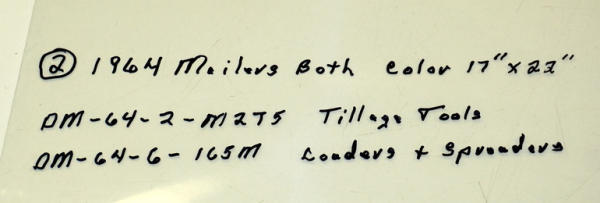 ② 1964 Mailers Both Color 17" x 22"
DM-64-2-M275 Tillage Tools
DM-64-6-165M Loaders + Spreaders